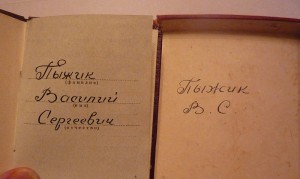 Пыжик
(фамилия)
Василий
(имя)
Сергеевич
(отчество)
Пыжик
В. С.